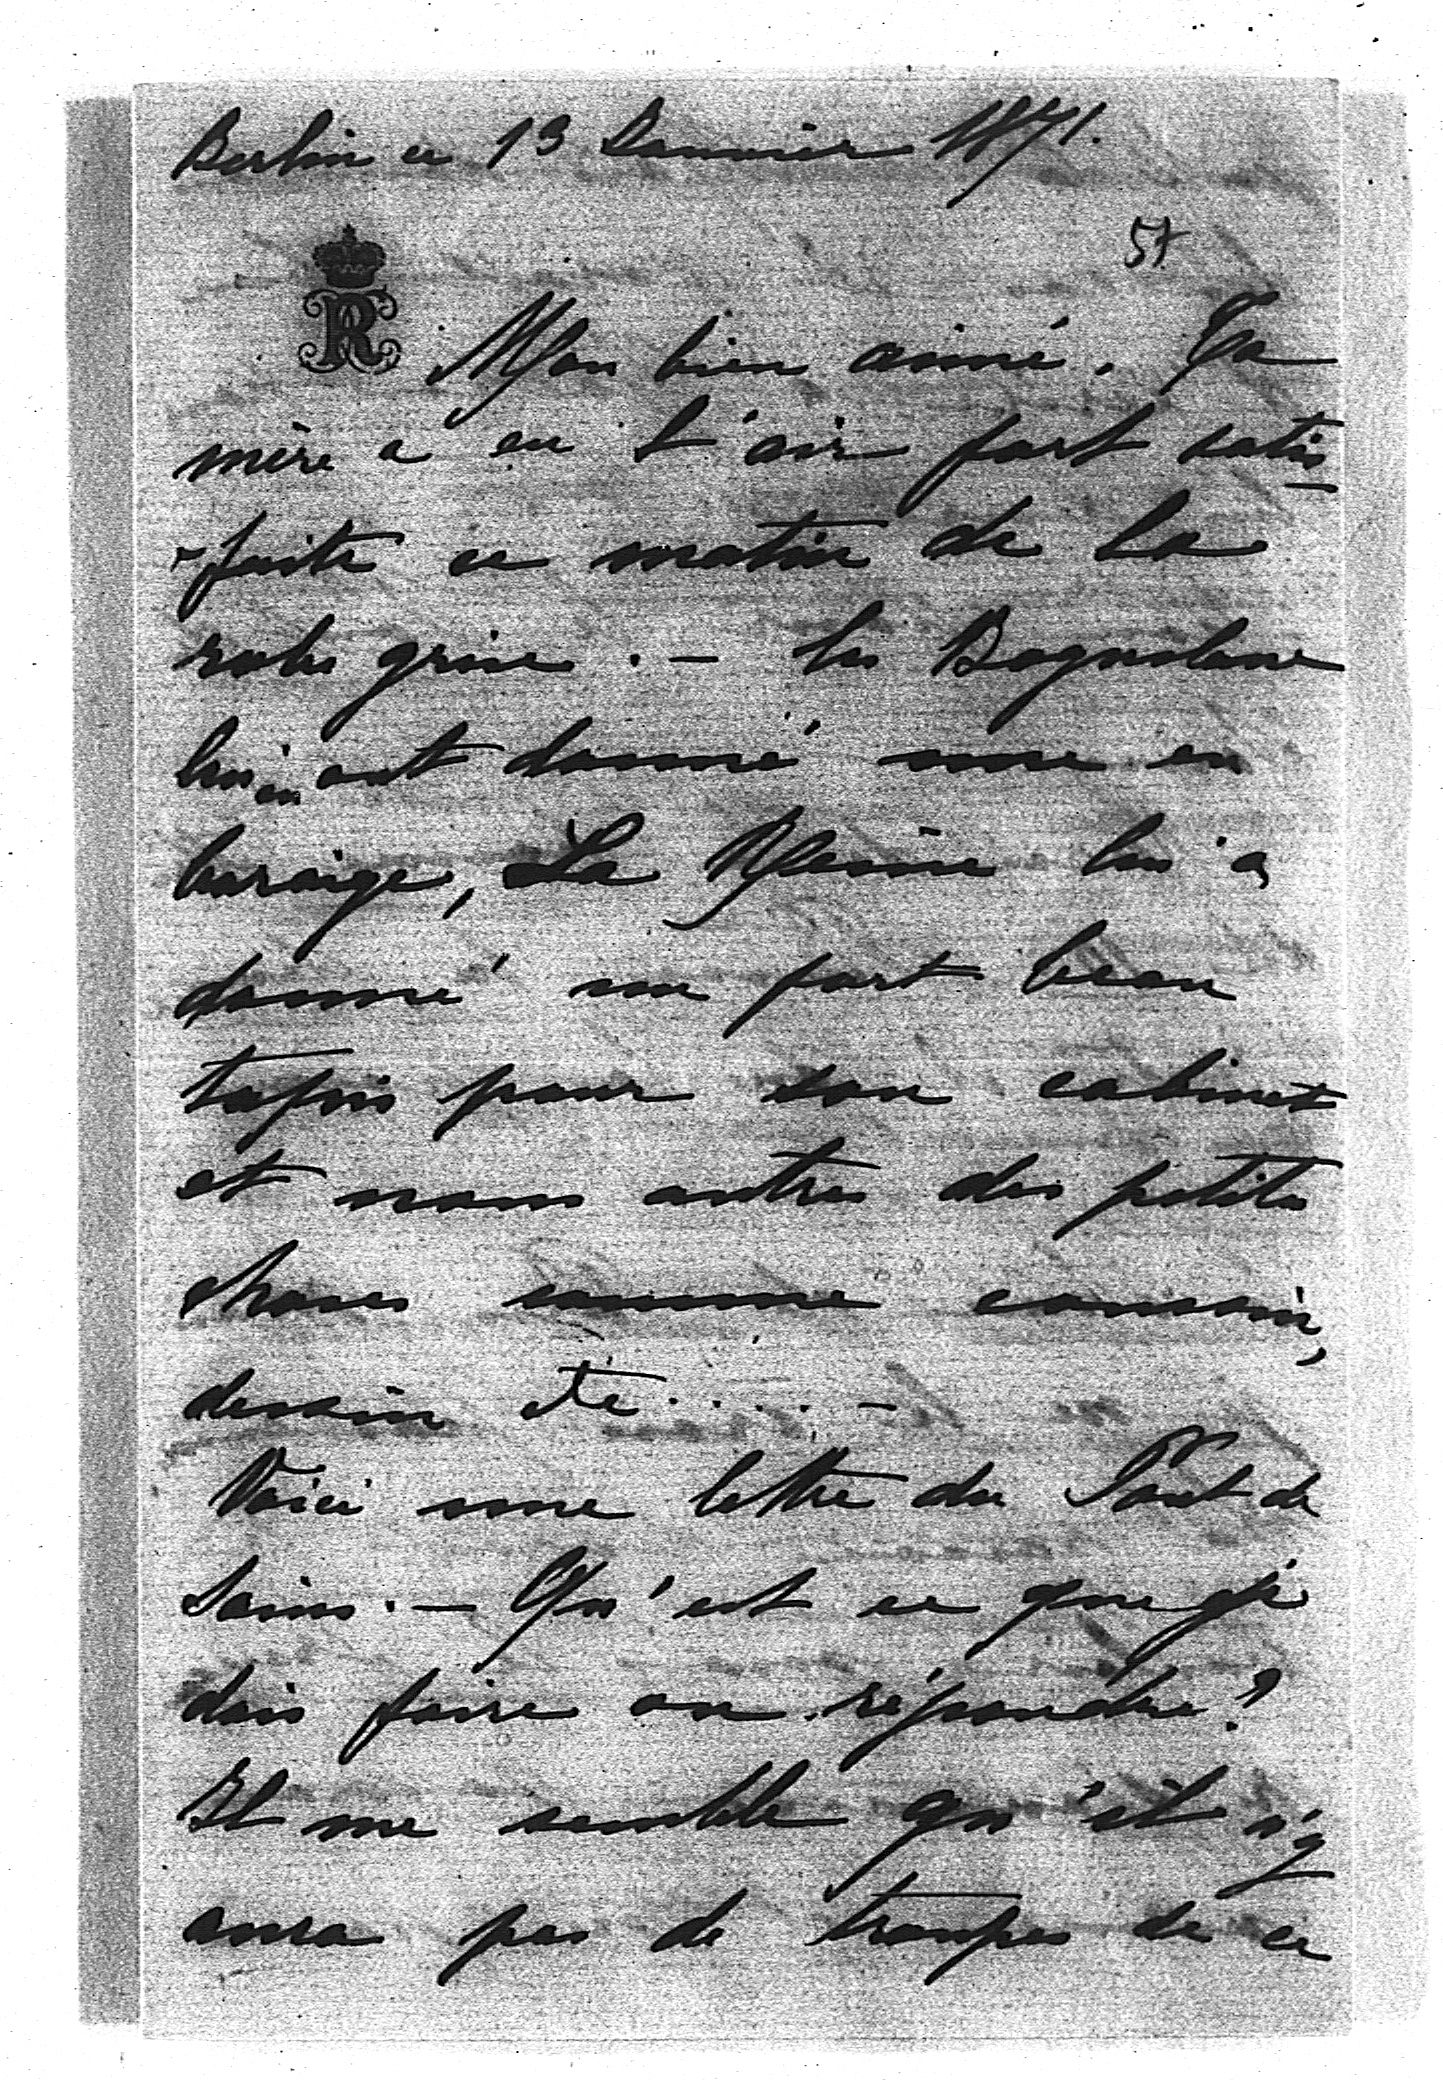 Berlin ce 13 Janvier 1871.
57.
R
Mon bien aimé. Ta
mère a eu l'air fort satis
-faite ce matin de la
robe grise. – les Boguslave
lui en ont donné une en
barège, La Reine lui a
donné un fort beau
tapis pour son cabinet
et nous autres des petites
choses comme coussin,
dessin etc.... –
Voici une lettre du
Sains. – Qu'est ce que je
dois faire ou répondre?
Il me semble qu'il n'y
aura pas de troupes de ce